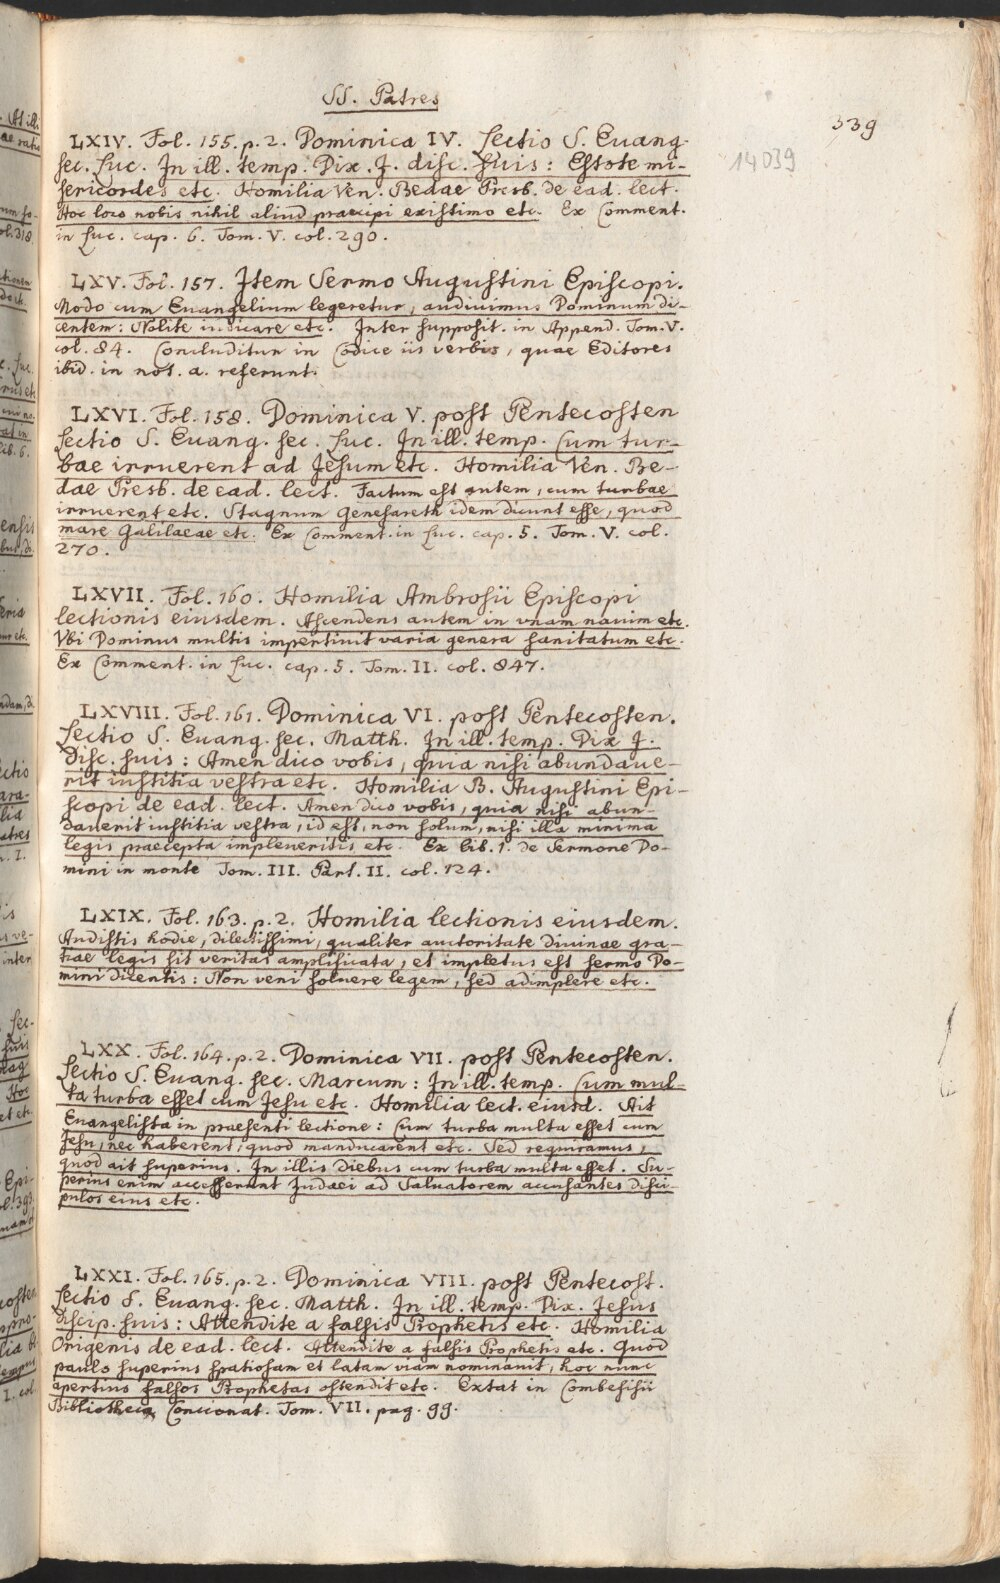 SS. Patres
539
14039
LXIV. Fol. 155. p. 2. Dominica IV. Lectio S. Euang.
sec. Luc. In ill. temp. Dix. J. disc. suis: Estote mi-
sericordes etc. Homilia Ven. Bedae Presb. de ead. lect.
Hoc loco nobis nihil aliud praecipi existimo etc. Ex Comment.
in Luc. cap. 6. Tom. V. col. 290.
LXV. Fol. 157. Item Sermo Augustini Episcopi.
Modo cum Euangelium legeretur, audiuimus Dominum di-
centem: Nolite iudicare etc. Inter supposit. in Append. Tom. V.
col. 84. Concluditur in Codice iis verbis, quae Editores
ibid. in not. a. referunt.
LXVI. Fol. 158. Dominica V. post Pentecosten
Lectio S. Euang. sec. Luc. In ill. temp. Cum tur-
bae irruerent ad Jesum etc. Homilia Ven. Be-
dae Presb. de ead. lect. Factum est autem, cum turbae
irruerent etc. Stagnum Genesareth idem dicunt esse, quod
mare Galilaeae etc. Ex Comment. in Luc. cap. 5. Tom. V. col.
270.
LXVII. Fol. 160. Homilia Ambrosii Episcopi
lectionis eiusdem. Ascendens autem in vnam nauim etc.
Vbi Dominus multis impertiuit varia genera sanitatum etc.
Ex Comment. in Luc. cap. 5. Tom. II. col. 847.
LXVIII. Fol. 161. Dominica VI. post Pentecosten.
Lectio S. Euang. sec. Matth. In ill. temp. Dix J.
Disc. suis: Amen dico vobis, quia nisi abundaue-
rit iustitia vestra etc. Homilia B. Augustini Epi-
scopi de ead. lect. Amen dico vobis, quia nisi abun-
dauerit iustitia vestra, id est, non solum, nisi illa minima
legis praecepta impleueritis etc. Ex lib. 1. de Sermone Do-
mini in monte Tom. III. Part. II. col. 124.
LXIX. Fol. 163. p. 2. Homilia lectionis eiusdem.
Audistis hodie, dilectissimi, qualiter auctoritate diuinae gra-
tiae legis sit veritas amplificata, et impletus est sermo Do-
mini dicentis: Non veni soluere legem, sed adimplere etc.
LXX. Fol. 164. p. 2. Dominica VII. post Pentecosten.
Lectio S. Euang. sec. Marcum: In ill. temp. Cum mul-
ta turba esset cum Jesu etc. Homilia lect. eiusd. Ait
Euangelista in praesenti lectione: Cum turba multa esset cum
Jesu, nec haberent, quod manducarent etc. Sed requiramus,
quod ait superius. In illis diebus cum turba multa esset. Su-
perius enim accesserunt Judaei ad Saluatorem accusantes disci-
pulos eius etc.
LXXI. Fol. 165. p. 2. Dominica VIII. post Pentecost.
Lectio S. Euang. sec. Matth. In ill. temp. Dix. Jesus
Discip. suis: Attendite a falsis Prophetis etc. Homilia
Origenis de ead. lect. Attendite a falsis Prophetis etc. Quod
paulo superius spatiosam et latam viam nominauit, hoc nunc
apertius falsos Prophetas ostendit etc. Extat in Combefisii
Bibliotheca Concionat. Tom. VII. pag. 99.